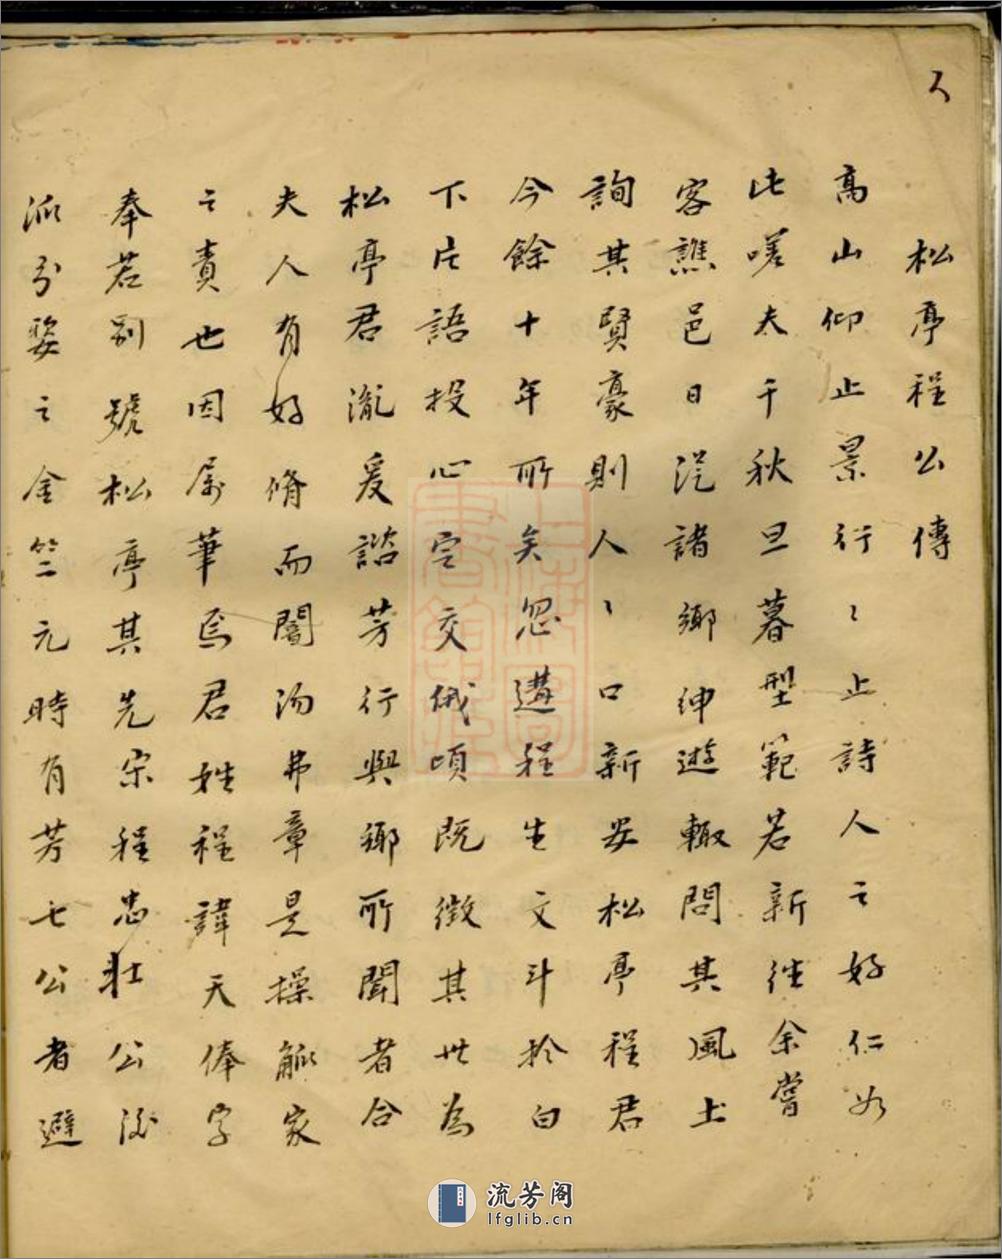 松亭程公傳
高山仰止景行〻止詩人之好仁如
此嗟夫千秋旦暮型範若新徃余嘗
客譙邑日從諸鄉紳遊輙問其風土
詢其賢豪則人〻口新安松亭程君
今餘十年所矣忽遘程生文斗於白
下片語投心定交俄頃既徵其世為
松亭君胤爰諮芳行與鄉所聞者合
夫人有好脩而闇汋弗章是操觚家
之責也因屬筆焉君姓程諱天俸字
奉若別號松亭其先宋程忠壯公後
派分婺之金竺元時有芳七公者避
上海圖書館藏
流芳阁
lfglib.cn